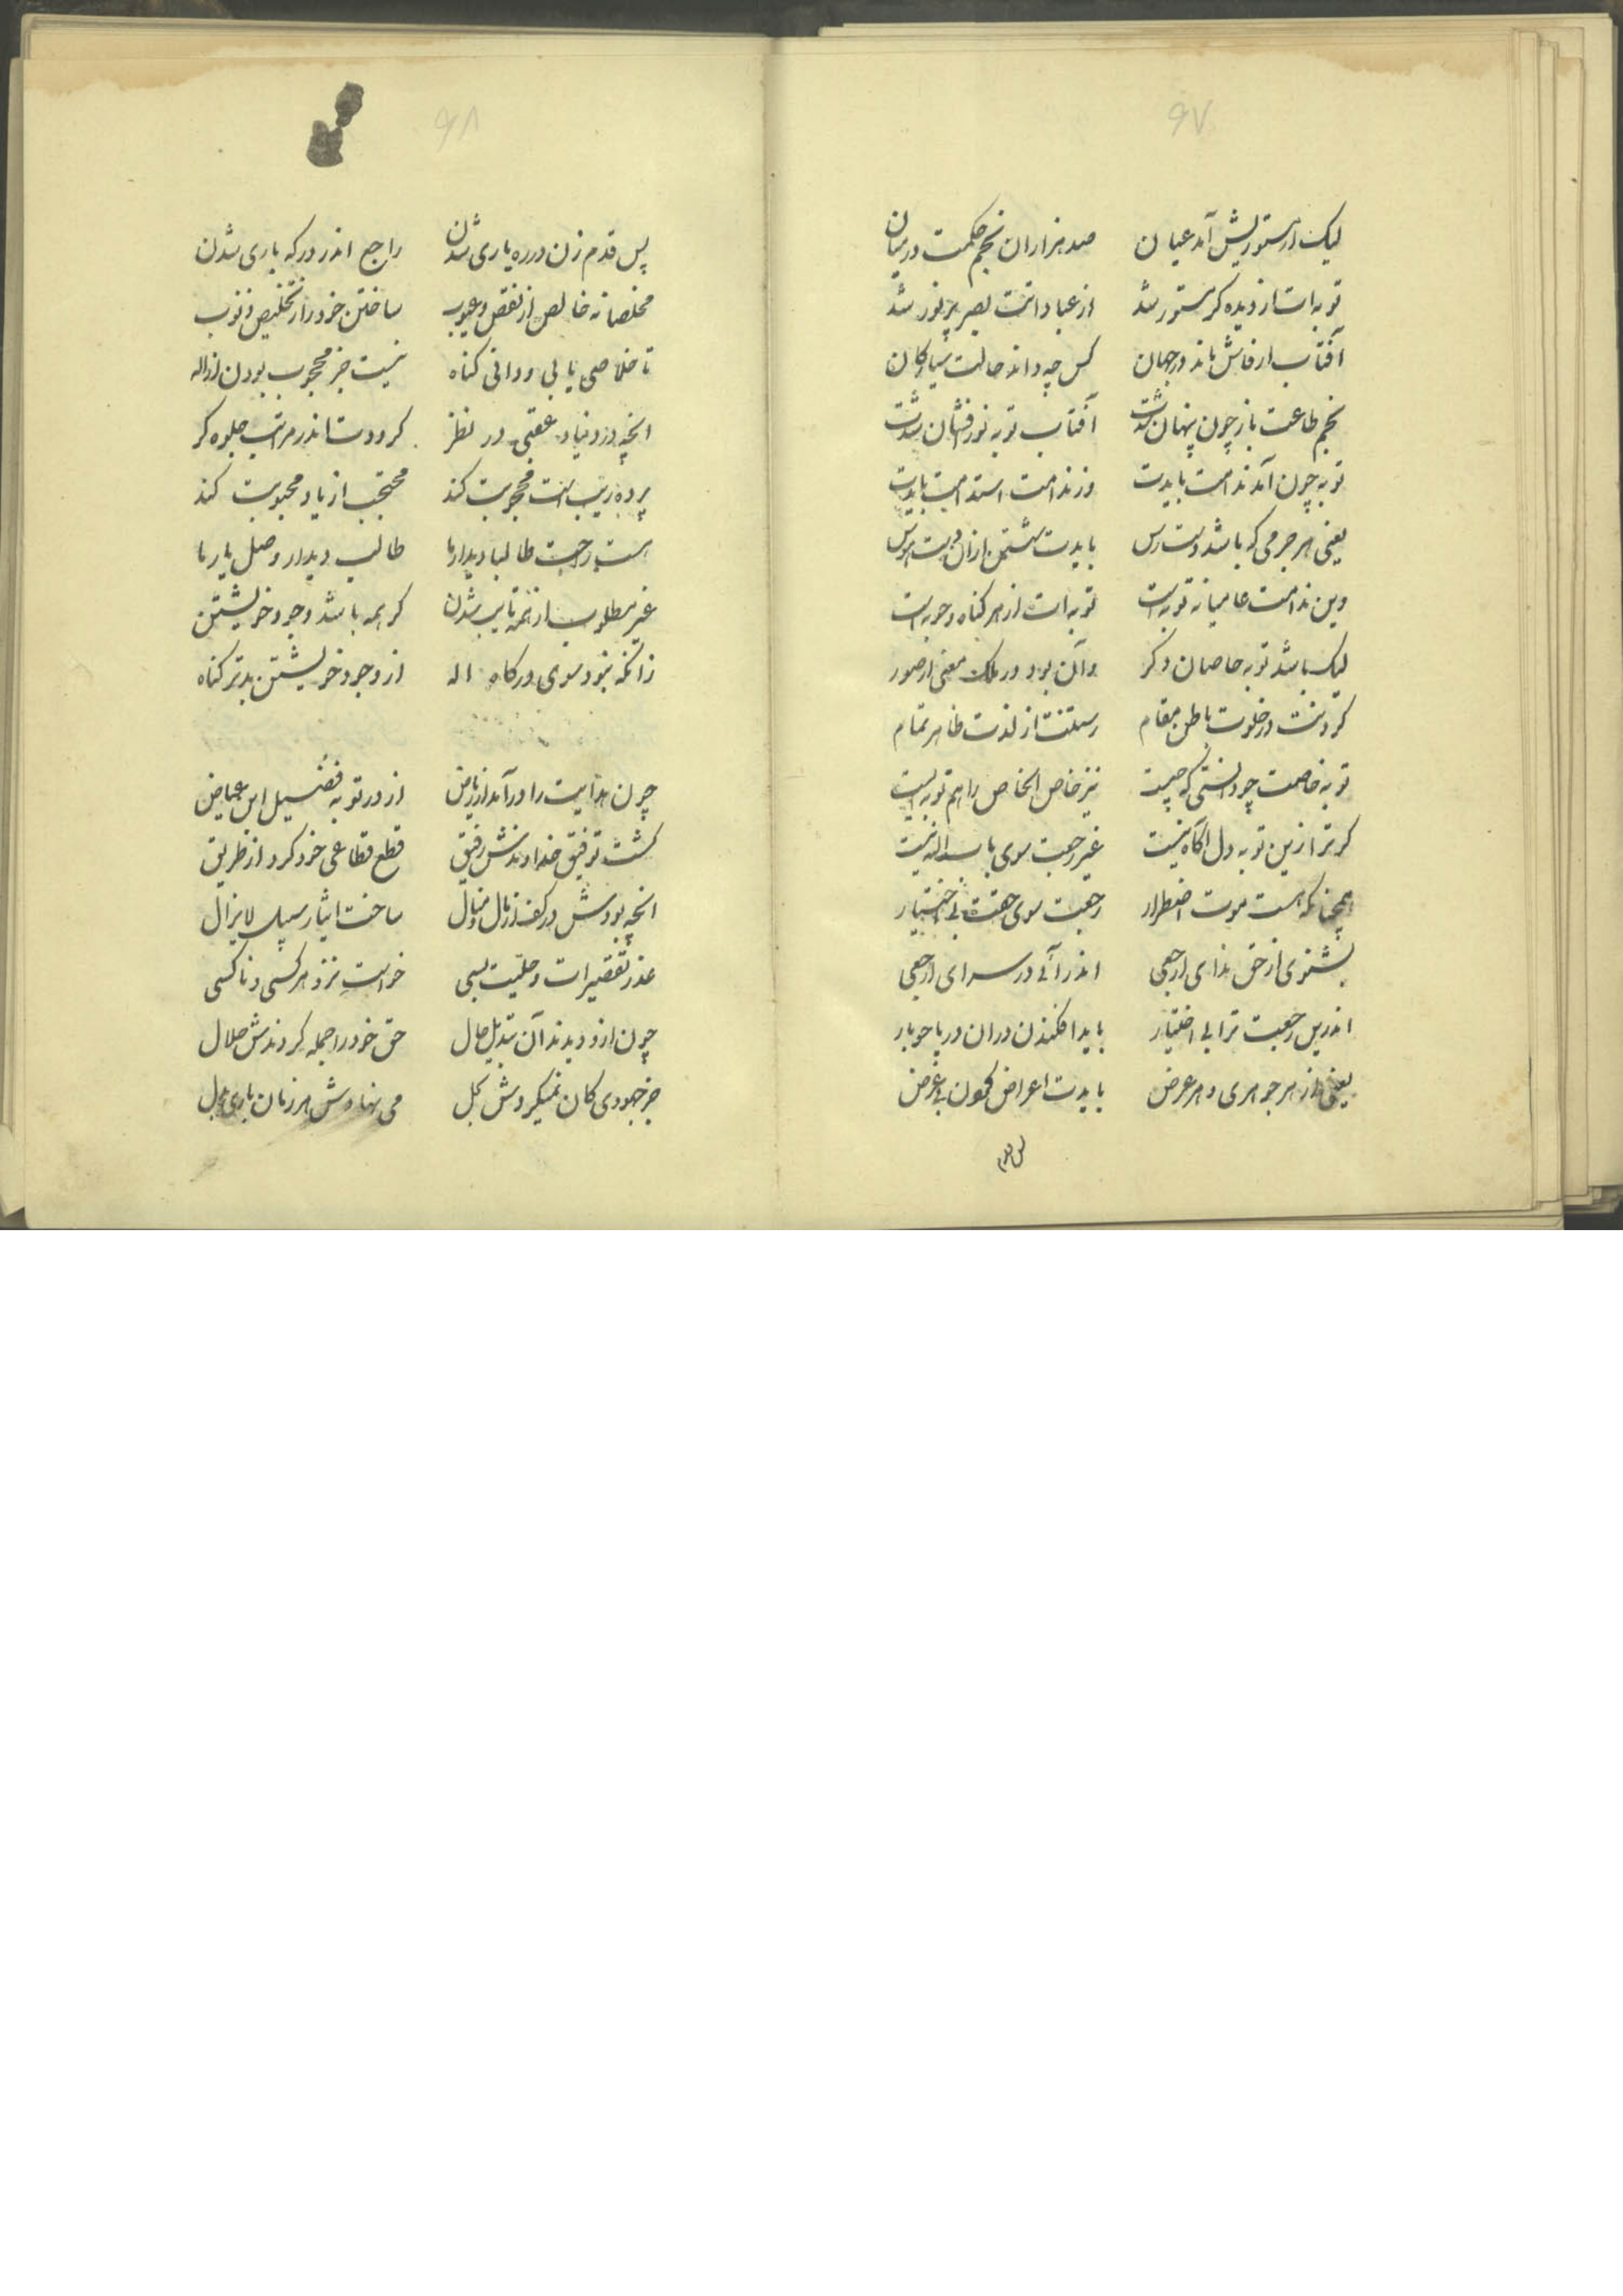 ۶۷
لیک از مستوریش آمد عیان صد هزاران نجم حکمت در میان
توبه‌ات از دیده گر مستور شد از عباداتت بصر پر نور شد
آفتاب ار فاش ماند در جهان کس چه داند حالت سیارگان
نجم طاعت باز چون پنهان شدت آفتاب توبه نورافشان شدت
توبه چون آمد ندامت بایدت وز ندامت استدامت بایدت
یعنی هر جرمی که باشد دسترس بایدت شستن ازان دست هوس
وین ندامت عامیانه توبه است توبه‌ات از هر گناه و حوبه است
لیک باشد توبه خاصان دگر وآن بود در ملک معنی از صور
کردنت در خلوت باطن مقام رستنت از لذت ظاهر تمام
توبه خاصت چو دانستی که چیست نیز خاص الخاص را هم توبه‌ایست
گر ترا زین توبه دل آگاه نیست غیر رجعت سوی باب الله نیست
همچنانکه هست موت اضطرار رجعت سوی حقت بی اختیار
بشنوی از حق ندای ارجعی اندر آئی در سرای ارجعی
اندرین رجعت ترا بی اختیار باید افکندن دران دریا چو بار
یعنی از هر جوهری و هر عرض بایدت اعراض کردن بی غرض
پس قدم
۶۸
پس قدم زن در ره یاری شدن راجع اندر درگه باری شدن
مخلصانه خالص از نقص و عیوب ساختن خود را ز تخلیص ذنوب
تا خلاصی یابی و دانی گناه نیست جز محجوب بودن از اله
آنچه در دنیا و عقبی در نظر گرددت اندر مراتب جلوه گر
پرده زیب است محجوبت کند محتجب از یاد محبوبت کند
هست واجب طالبا دیدار ما طالب دیدار وصل یار ما
غیر مطلوب از همه تایب شدن گر همه باشد وجود خویشتن
زانکه نبود سوی درگاه اله از وجود خویشتن بدتر گناه
چون هدایت را درآمد از ریاض از در توبه فضیل ابن عیاض
گشت توفیق خداوندش رفیق قطع قطاعی خود کرد از طریق
آنچه بودش در کف از مال و منال ساخت ایثار سبیل لایزال
عذر تقصیرات و حلیت بسی خواست نزد هر کسی و ناکسی
چون ازو دیدند آن تبدیل حال حق خود را جمله کردندش حلال
جز جهودی کان نمیکردش بحل می نهادش هر زمان باری بدل